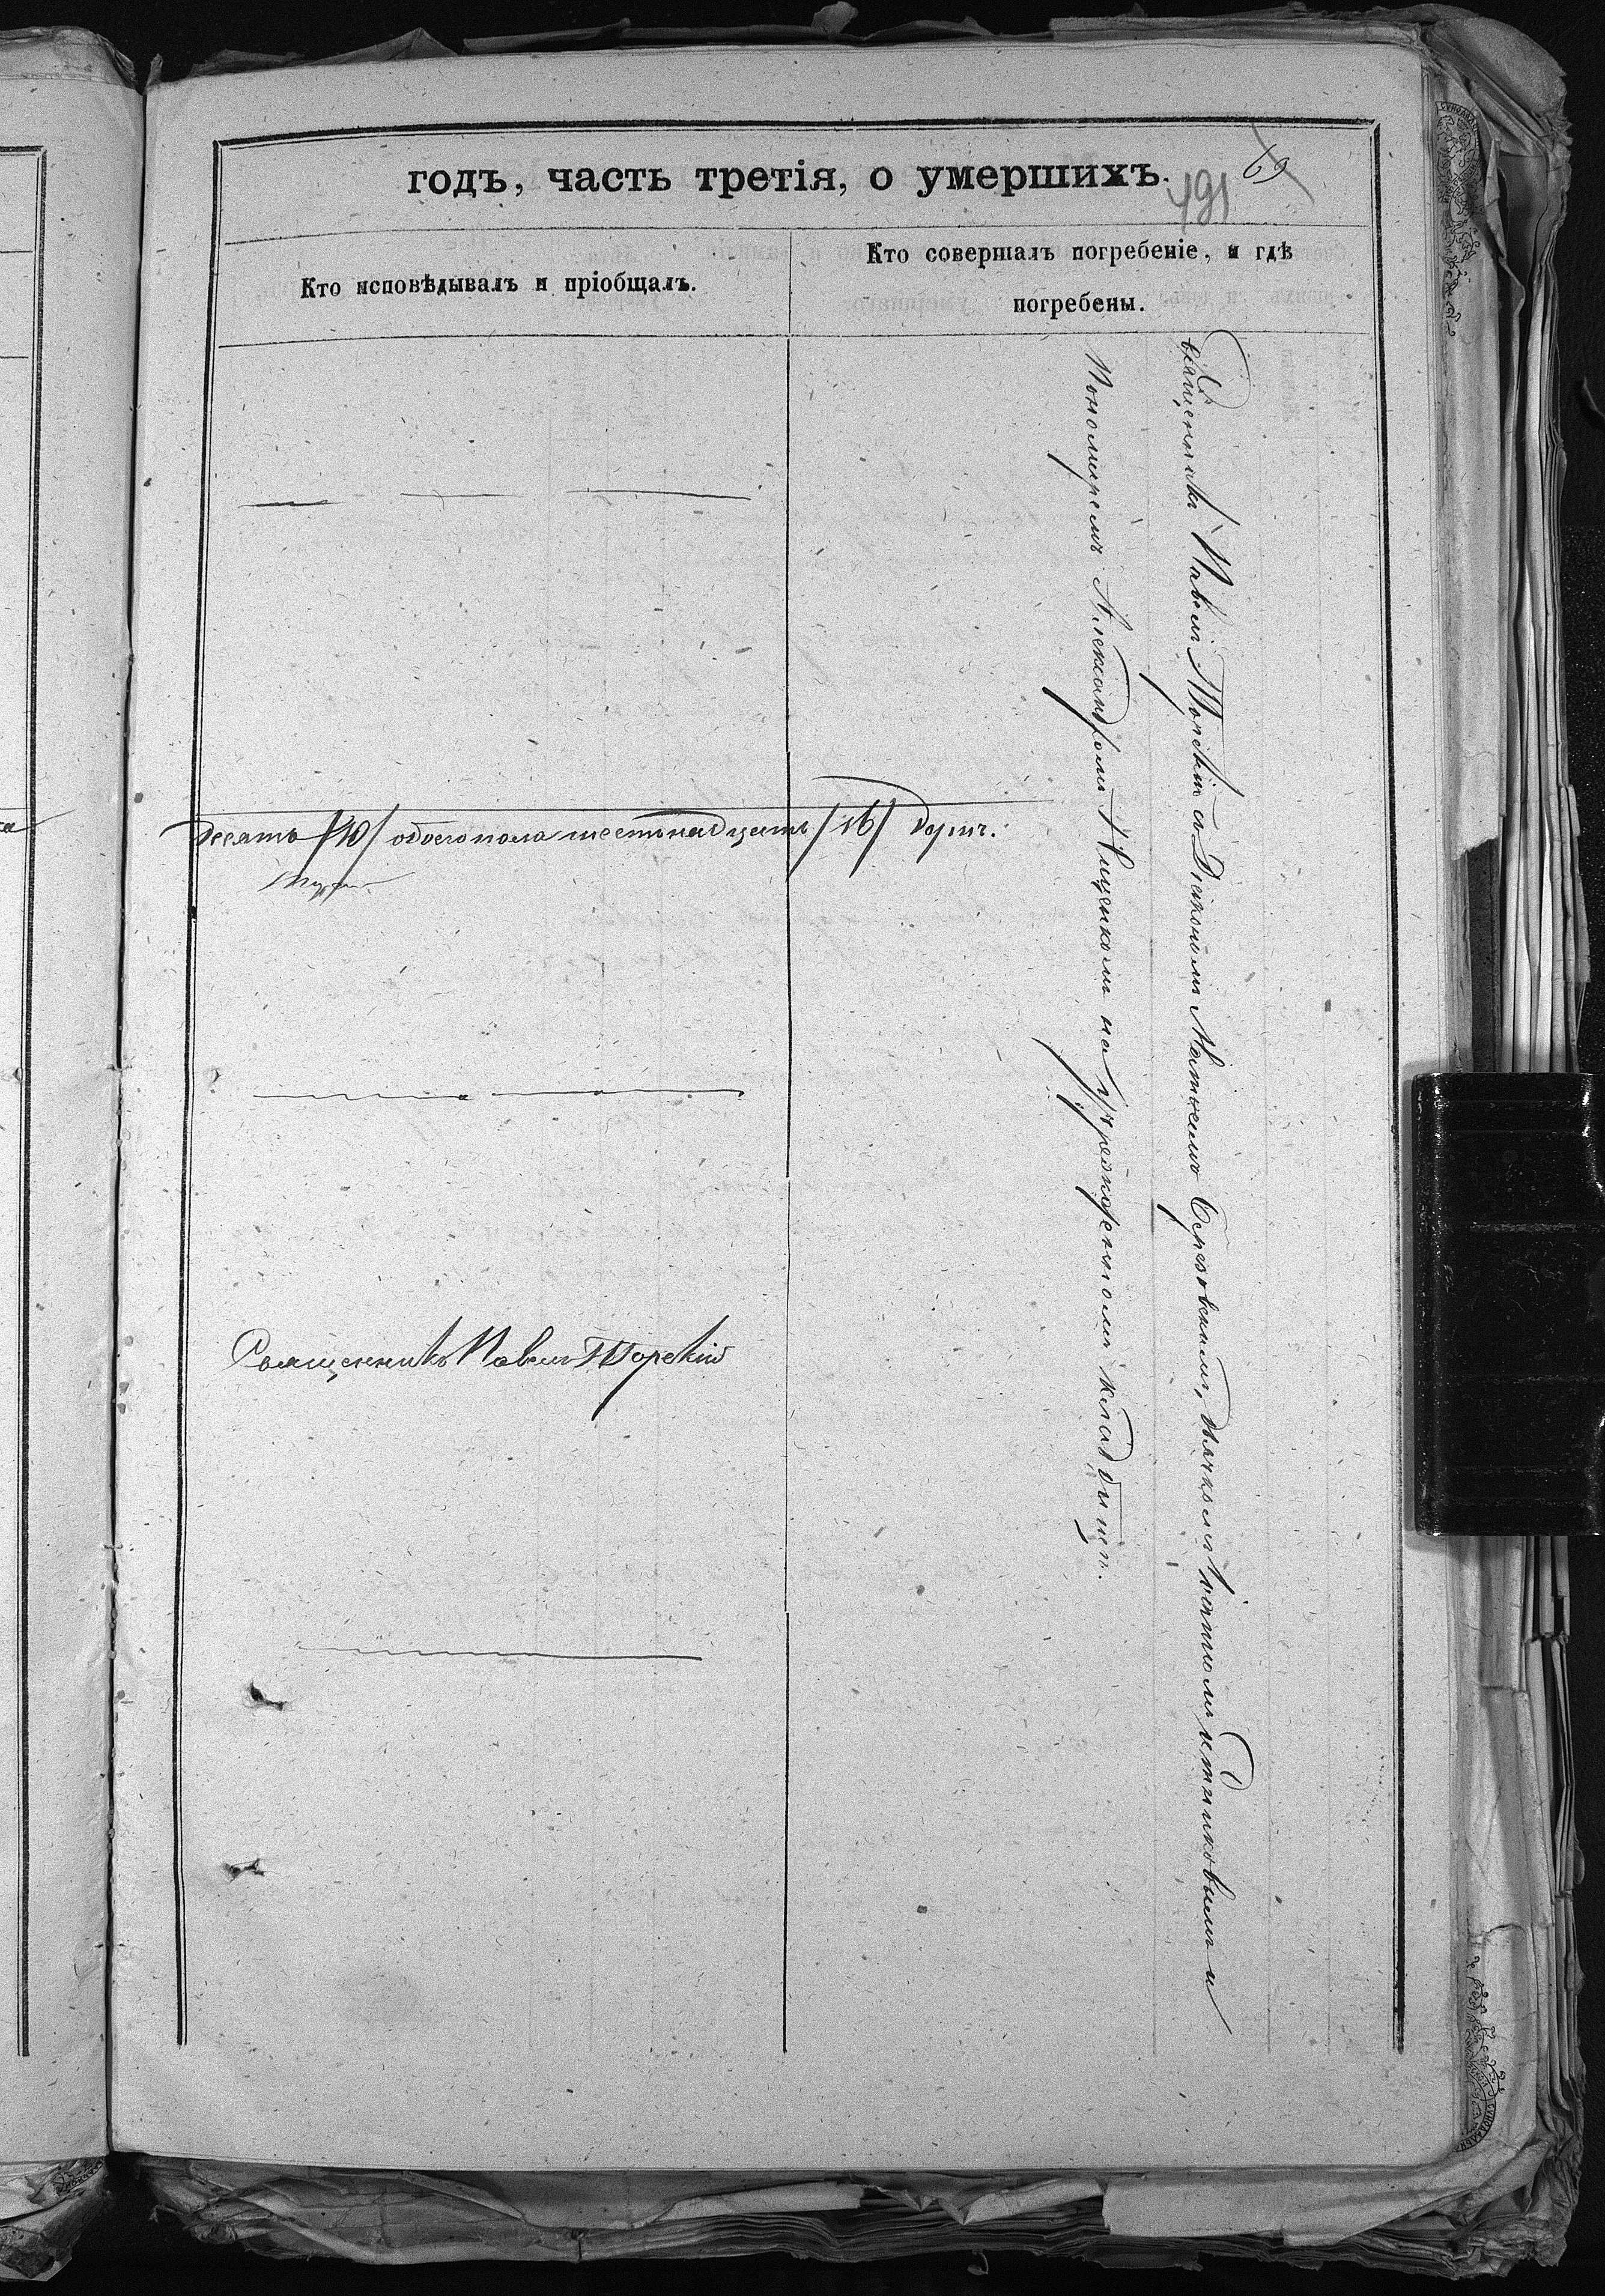 годъ, часть третія, о умершихъ.
69
491
Кто исповѣдывалъ и пріобщалъ.
Кто совершалъ погребеніе, и гдѣ
погребены.
десять /10/ обоего пола шестьнадцать /16/ душъ.
Священникъ Павелъ Торскій
Священникъ Павелъ Торскій съ Діакономъ Матвеемъ Березовскимъ, дьячкомъ и
Пономаремъ Александромъ на Учрежденномъ кладбищѣ.